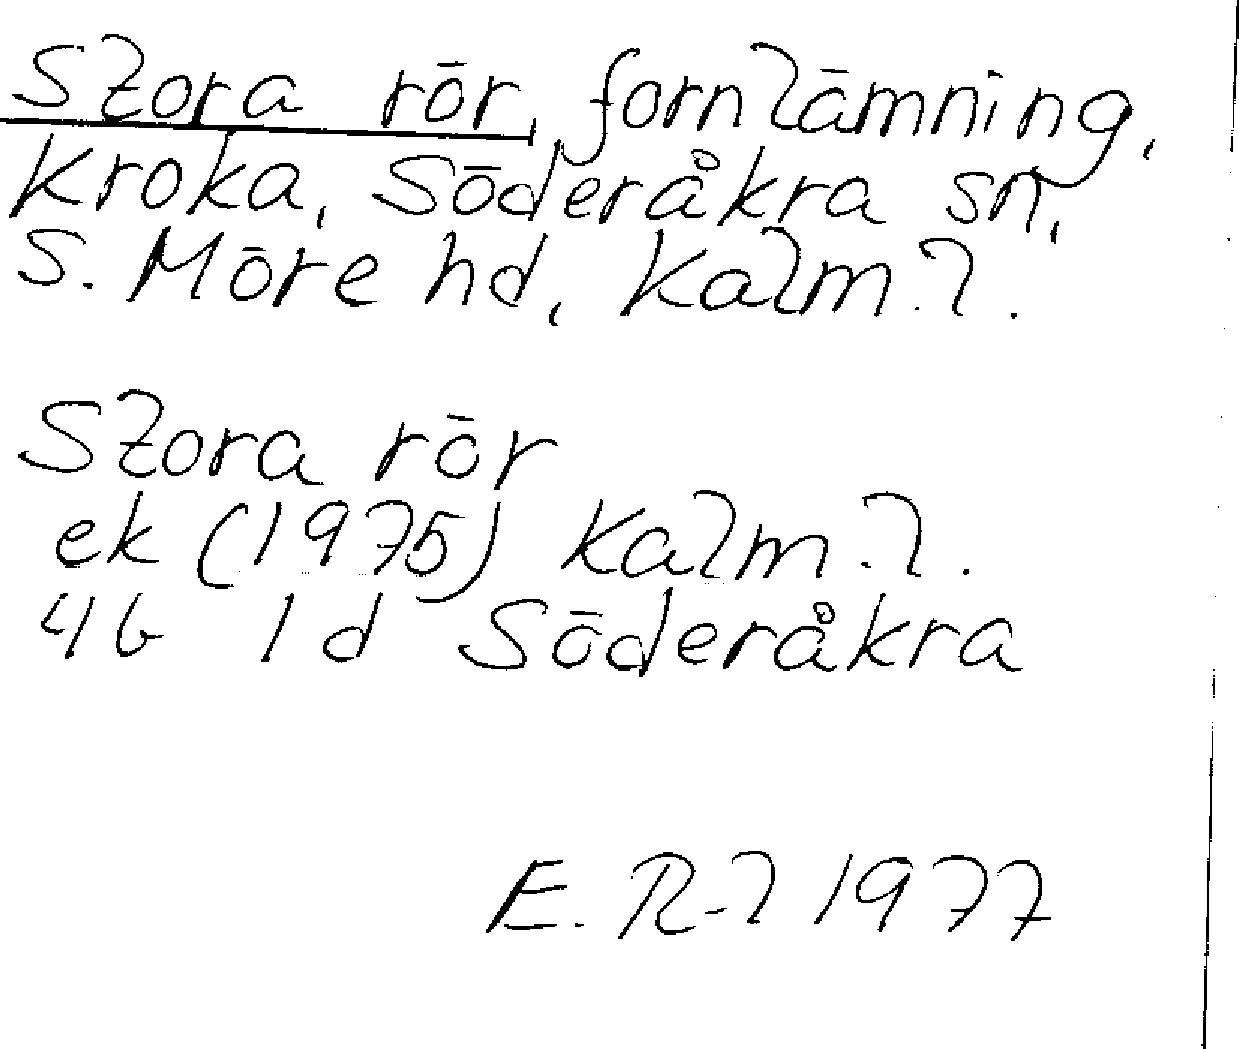 Stora rör, fornlämning,
Kroka, Söderåkra sn,
S. Möre hd, Kalm. l.
Stora rör
ek (1975) Kalm. l.
4G 1d Söderåkra
E. R-l 1977